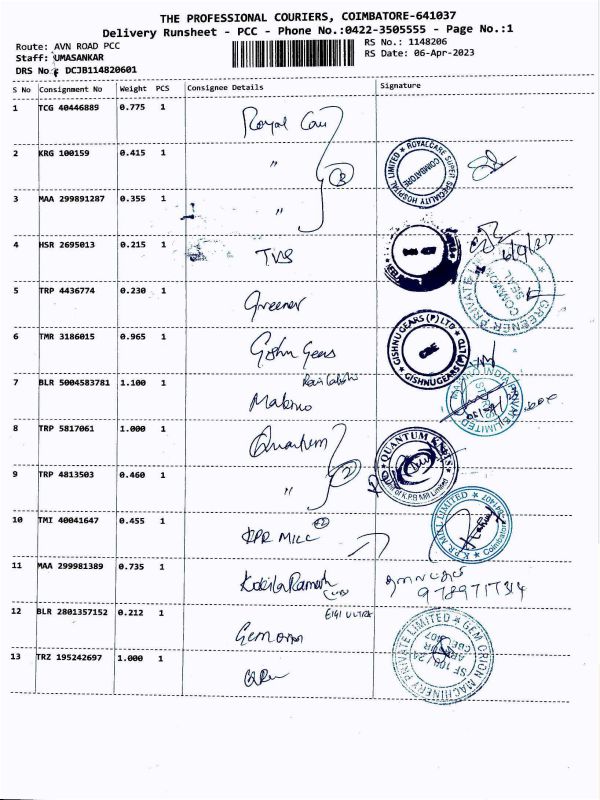 THE PROFESSIONAL COURIERS, COIMBATORE-641037
Delivery Runsheet - PCC - Phone No.:0422-3505555 - Page No.:1
Route: AVN ROAD PCC
RS No.: 1148206
Staff: UMASANKAR
RS Date: 06-Apr-2023
DRS No.: DCJB114820601
S No Consignment No Weight PCS Consignee Details Signature
1 TCG 40446889 0.775 1 Royal Care
2 KRG 100159 0.415 1 "
ROYALCARE SUPER SPECIALITY HOSPITAL LIMITED
COIMBATORE
3 MAA 299891287 0.355 1 "
4 HSR 2695013 0.215 1 TVS
5 TRP 4436774 0.230 1 Greener
GREENER PRIVATE
COMMON SEAL
6 TMR 3186015 0.965 1 Gishnu Gears
GISHNU GEARS (P) LTD
GISHNU GEARS (P) LTD
CBE
7 BLR 5004583781 1.100 1 Makino
INDIA PRIVATE LIMITED
8 TRP 5817061 1.000 1 Quantum
QUANTUM KNITS
of K.P.R Mill Limited
9 TRP 4813503 0.460 1 "
2
10 TMI 40041647 0.455 1 KPR MILL
K.P.R. MILL LIMITED
Coimbatore
11 MAA 299981389 0.735 1 Kokila Ramesh
12 BLR 2801357152 0.212 1 Gem orion
GEM ORION MACHINERY PRIVATE LIMITED
13 TRZ 195242697 1.000 1